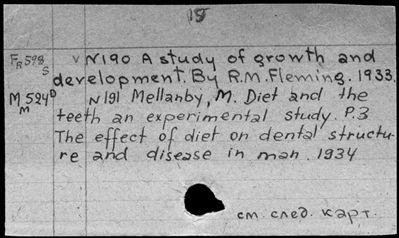 18
FR598 S v N190 A study of growth and
development. By R.M. Fleming. 1933.
M524D M N191 Mellanby, M. Diet and the
teeth an experimental study. P.3
The effect of diet on dental structu-
re and disease in man. 1934
см. след. карт.